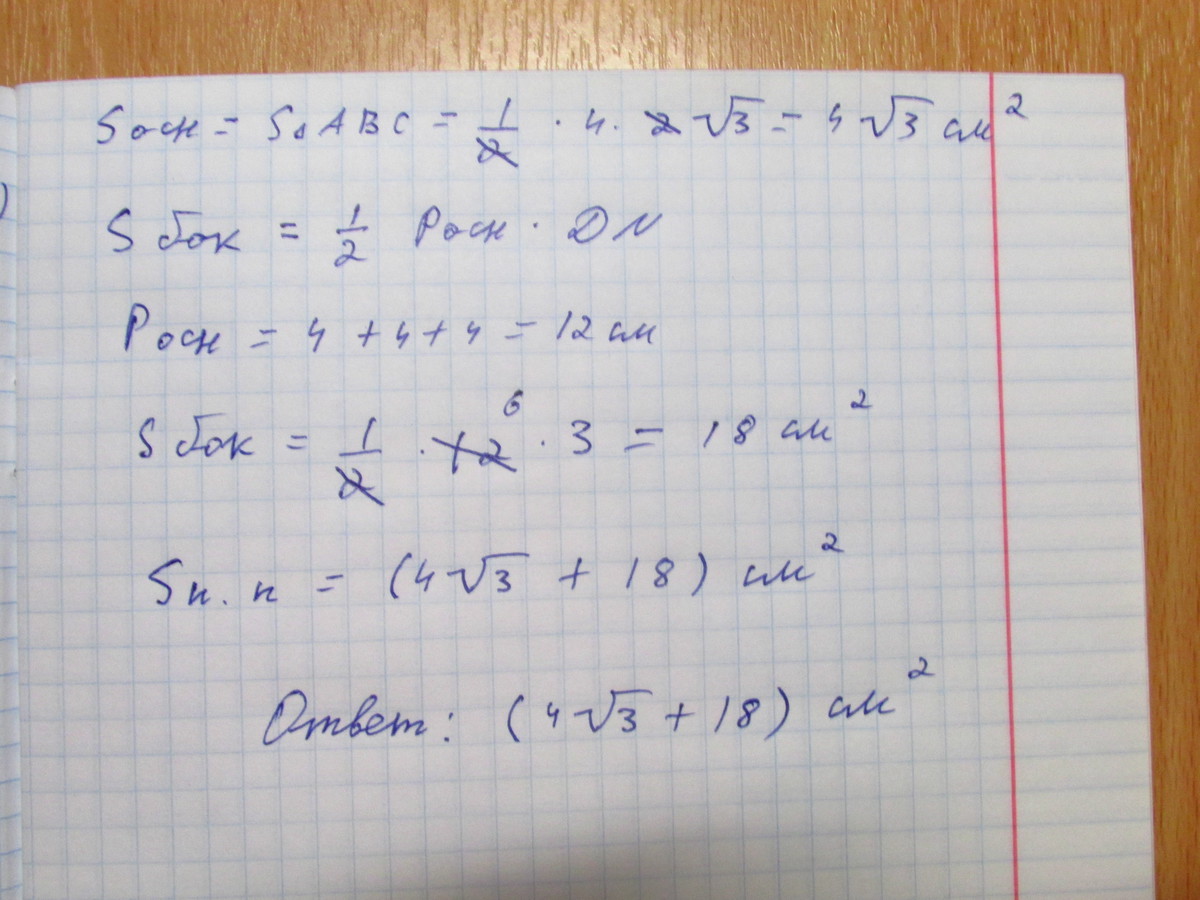 Sосн = S△ABC = 1/2 · 4 · 2√3 = 4√3 см²
Sбок = 1/2 Pосн · DN
Pосн = 4 + 4 + 4 = 12 см
Sбок = 1/2 · 12 6 · 3 = 18 см²
Sп.п = (4√3 + 18) см²
Ответ: (4√3 + 18) см²